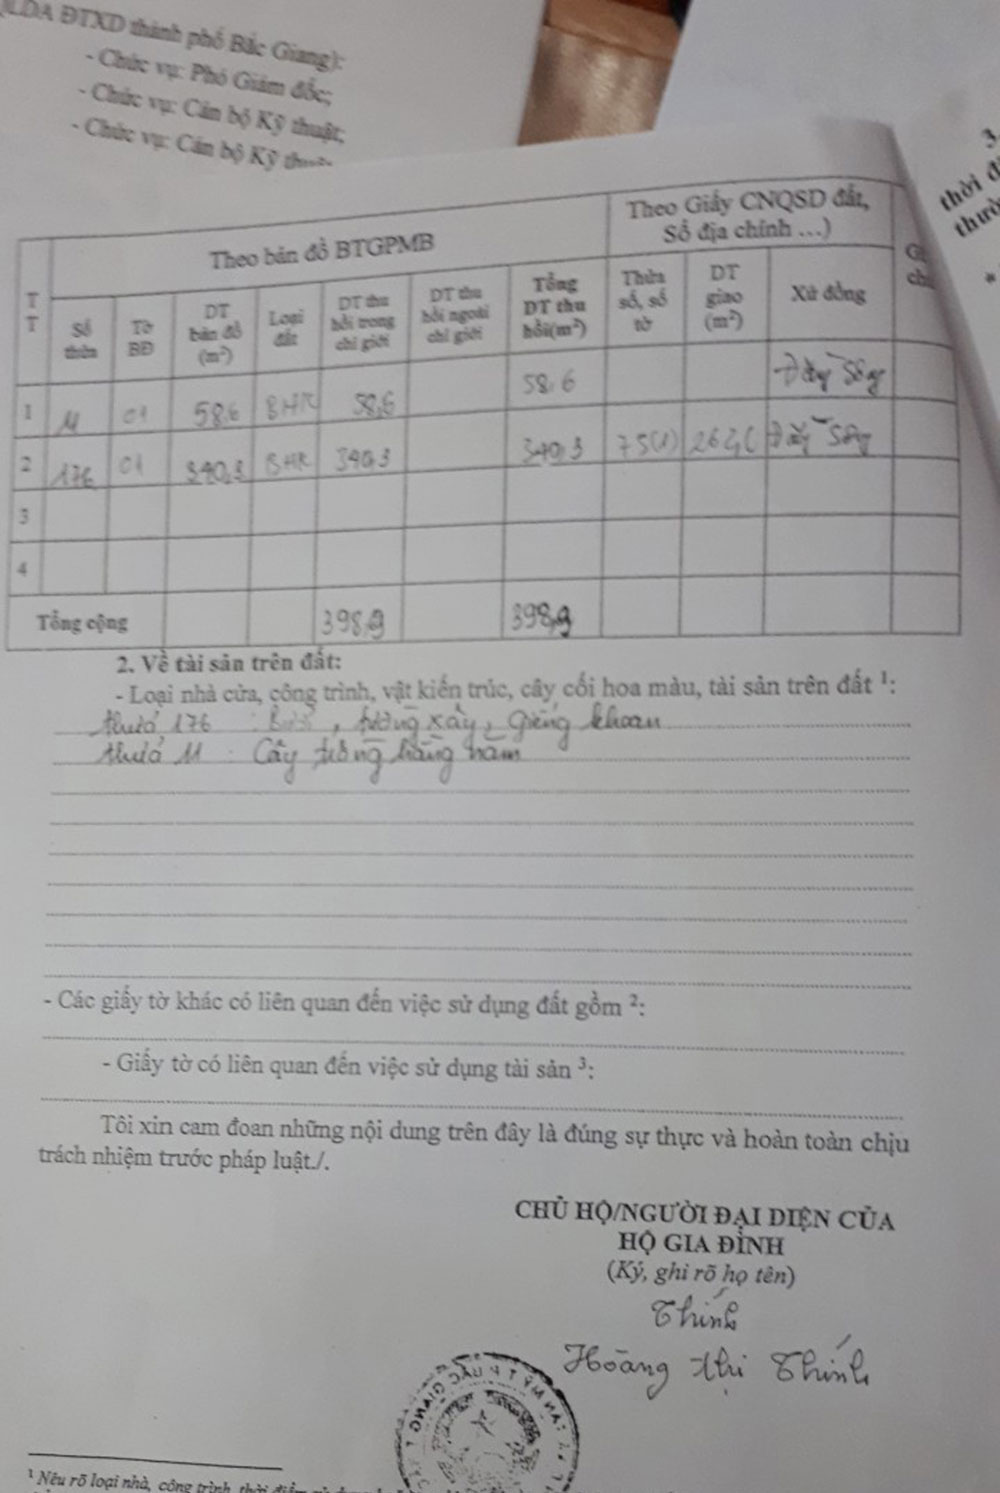 QLDA ĐTXD thành phố Bắc Giang):
- Chức vụ: Phó Giám đốc;
- Chức vụ: Cán bộ Kỹ thuật;
- Chức vụ: Cán bộ Kỹ
3
thời
thườ
T T
Theo bản đồ BTGPMB
Theo Giấy CNQSD đất, Sổ địa chính …)
Số thửa
Tờ BĐ
DT bản đồ (m²)
Loại đất
DT thu hồi trong chỉ giới
DT thu hồi ngoài chỉ giới
Tổng DT thu hồi(m²)
Thửa số, số tờ
DT giao (m²)
Xứ đồng
1 11 01 58,6 BHK 58,6 58,6 Đáy Sông
2 176 01 340,3 BHK 340,3 340,3 75(1) Đáy Sông
3
4
Tổng cộng 398,9 398,9
2. Về tài sản trên đất:
- Loại nhà cửa, công trình, vật kiến trúc, cây cối hoa màu, tài sản trên đất ¹:
thửa 176 : , tường xây, Giếng khoan
thửa 11 : Cây trồng hàng năm
- Các giấy tờ khác có liên quan đến việc sử dụng đất gồm ²:
- Giấy tờ có liên quan đến việc sử dụng tài sản ³:
Tôi xin cam đoan những nội dung trên đây là đúng sự thực và hoàn toàn chịu
trách nhiệm trước pháp luật./.
CHỦ HỘ/NGƯỜI ĐẠI DIỆN CỦA
HỘ GIA ĐÌNH
(Ký, ghi rõ họ tên)
Thính
Hoàng Thị Thính
¹ Nêu rõ loại nhà, công trình, thời điểm